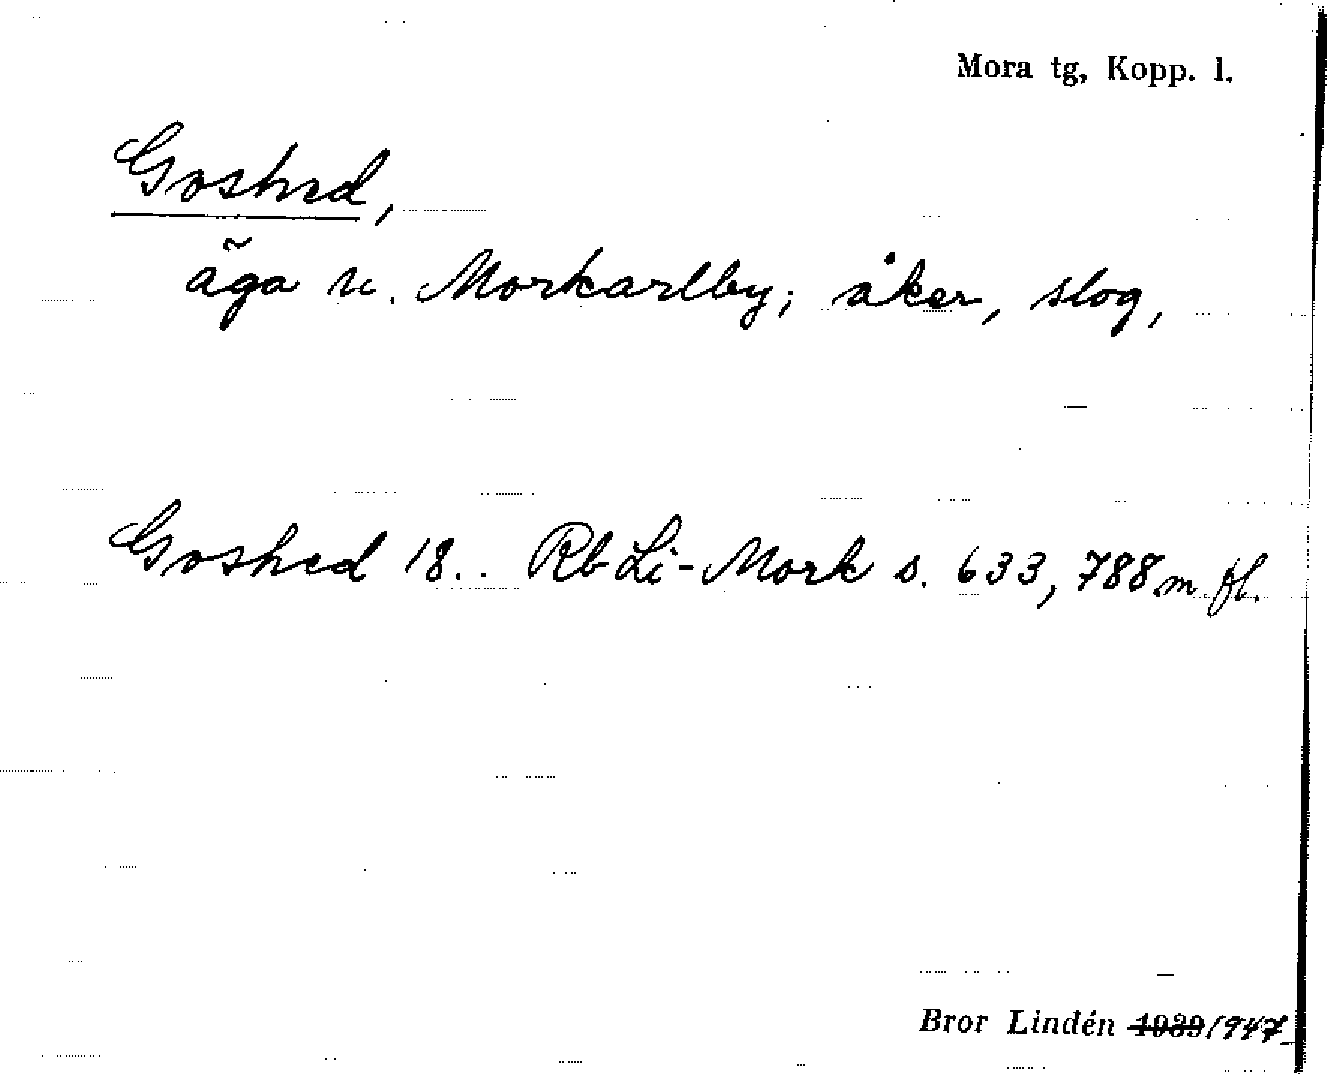 Mora tg, Kopp. l.
Goshed,
äga u. Morkarlby; åker, slog,
Goshed 18.. Rb Li-Mork s. 633, 788 m. fl.
Bror Lindén 1939 1947